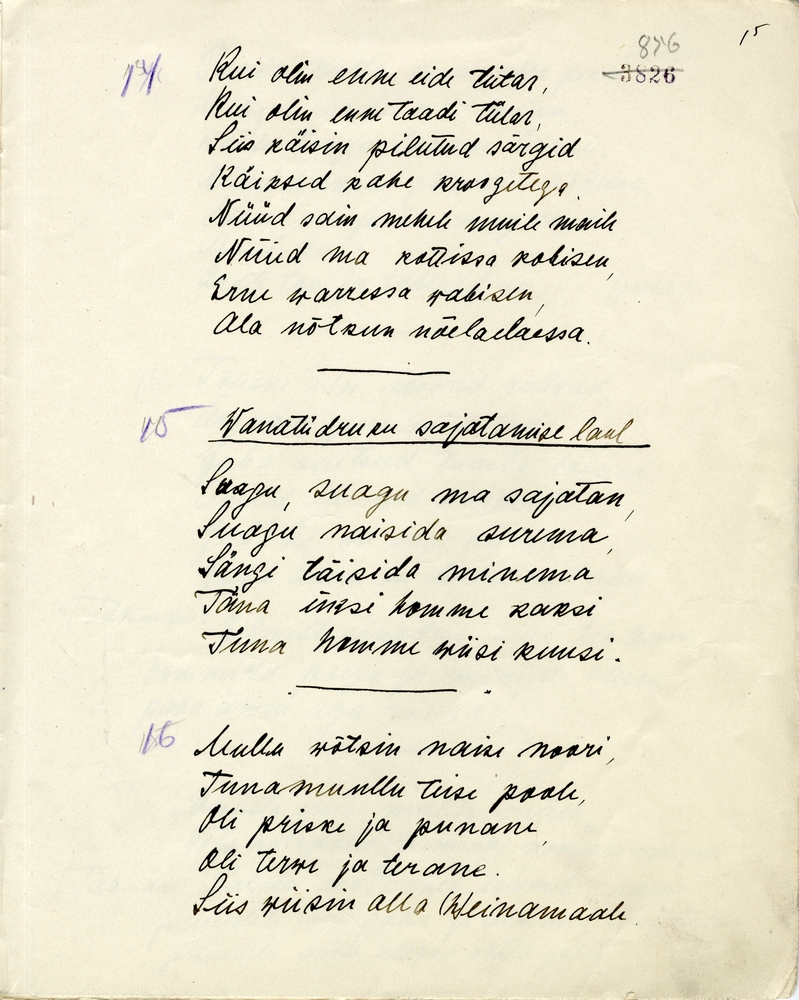 15
876
3826
14
Kui olin enne eide tütar,
Kui olin enne taadi tütar,
Siis käisin pilutud särgid
Käiksed kahe kroogetega.
Nüüd sain mehele muile maile
Nüüd ma kottissa kobisen,
Erne warressa wabisen,
Ala nõtkun nõelaelaessa.
15
Wanatüdruku sajatamise laul
Suagu, suagu ma sajatan,
Suagu naisida surema,
Sängi täisida minema
Täna üksi homme kaksi
Tuna homme wiisi kuusi.
16
Mullu wõtsin naise noori,
Tunamuullu teise poole,
Oli priske ja punane,
Oli terwe ja terane.
Siis wiisin alla (h)einamaale